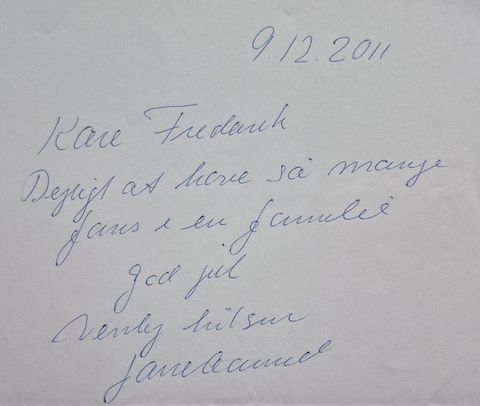 9.12.2011
Kære Frederik
Dejligt at have så mange
fans i en familie
god jul
Venlig hilsen
Jane Aamund